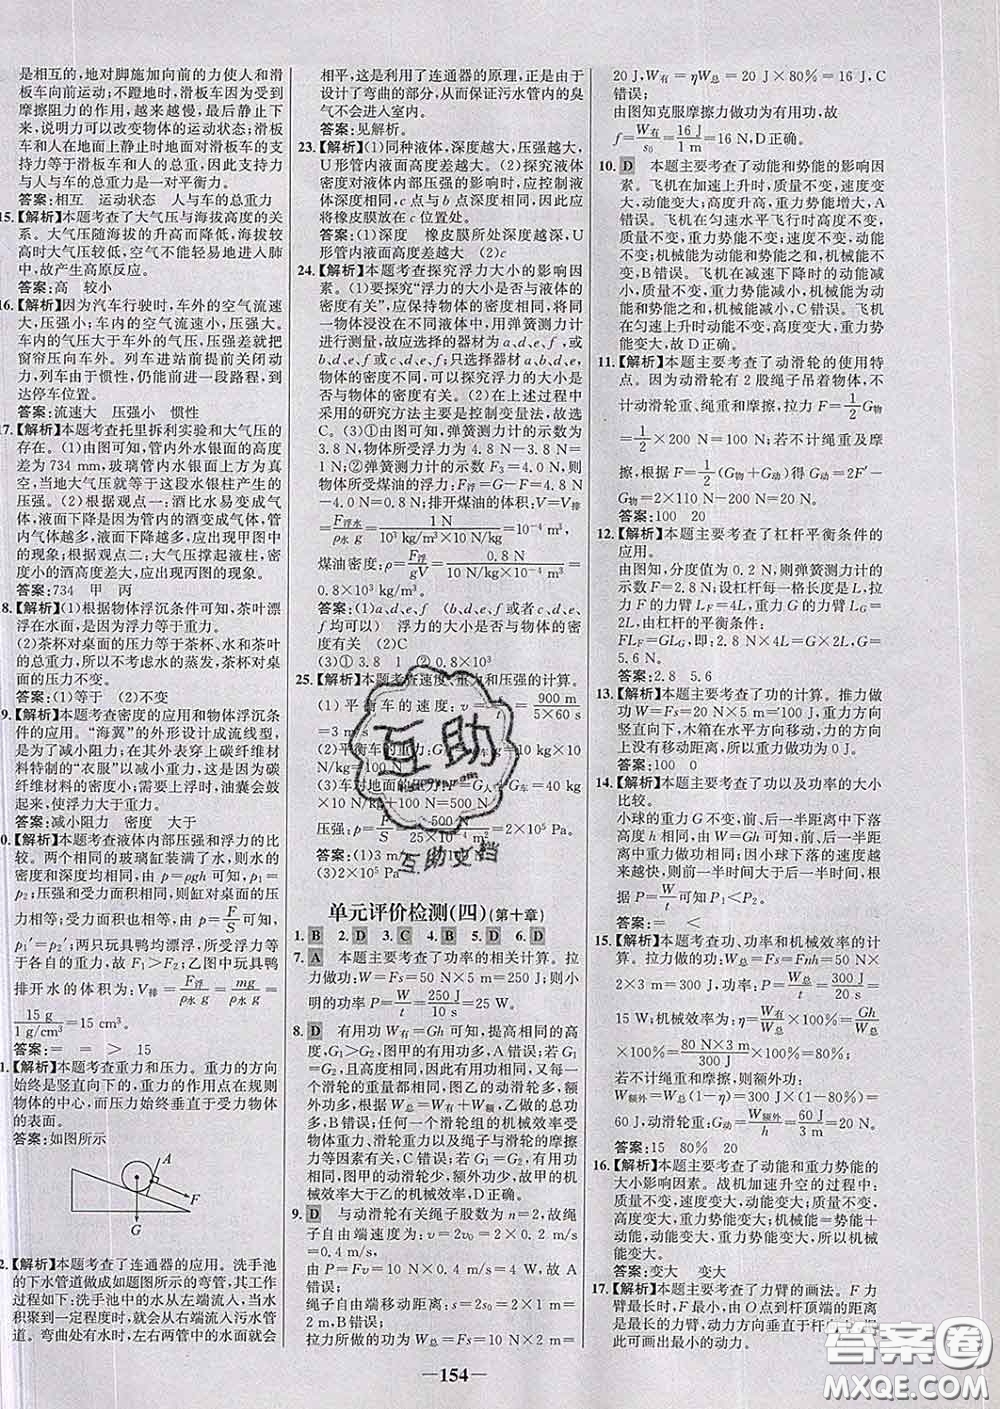 是相互的,地对脚施加向前的力使人和滑
板车向前运动;不蹬地时,滑板车因为受到
摩擦阻力的作用,越来越慢,最后静止下
来,说明力可以改变物体的运动状态;滑板
车和人在水平面上静止或匀速时地面对滑板车的
支持力等于滑板车和人的总重,因此支持力
与人与车的总重力是一对平衡力。
答案:相互 运动状态 人与车的总重力
15.【解析】本题考查了大气压与海拔高度的关
系。大气压随海拔的升高而降低,海拔较
高时大气压较低,空气不容易进入人肺
中,故产生高原反应。
答案:高 较小
16.【解析】因为汽车行驶时,车外的空气流速
大,压强小;车内的空气流速小,压强大。
车内的气压大于车外的气压,压强差就把
窗帘压向车外。列车进站前提前关闭动
力,列车由于惯性,仍能前进一段路程,到
达停车位置。
答案:流速大 压强小 惯性
17.【解析】本题考查托里拆利实验和大气压的
存在。(1)由图可知,管内外水银面的高度
差为734 mm,玻璃管内水银面的上方是真
空,当地大气压就等于这段水银柱产生的
压强。(2)根据观点一:酒比水易变成气
体,液面下降是因为管内的酒变成气体,管
内气体越多,液面下降越多,应出现甲图中
的现象;根据观点二:大气压撑起液柱,密
度小的酒高度大,应出现丙图的现象。
答案:734 甲 丙
8.【解析】(1)根据物体浮沉条件可知,茶叶漂
浮在水面,是因为浮力等于重力。
(2)茶杯对桌面的压力等于茶杯、水和茶叶
的总重力,所以如果不考虑水的蒸发,茶杯
对桌面的压力不变。
答案:(1)等于 (2)不变
9.【解析】本题考查密度的应用和物体浮沉条
件的应用。“海翼”的外形设计成流线型,
是为了减小阻力;在其外表穿上碳纤维材
料特制的“衣服”以减小重力,主要是因为碳
纤维材料的密度小;需要上浮时,油囊会鼓
起,使浮力大于重力。
答案:减小阻力 密度 大于
0.【解析】本题考查液体内部压强和浮力的比
较。两个相同的玻璃缸装满了水,则水的
密度和深度均相同,由 p=ρgh 可知,p₁=
p₂;压强和受力面积相同,则缸对桌面的压
力也相同,受力面积相同,由 p=F/S 可知,
p₁′=p₂′;两只玩具鸭均漂浮,浮力等于重
力,因此 F₁>F₂;乙图中玩具鸭
排开水的体积为:V排=F浮/ρ水g=mg/ρ水g=
15 g/1 g/cm³=15 cm³。
答案:= = > 15
1.【解析】本题考查重力和压力。重力的方向
始终是竖直向下的,重力的作用点在规则
物体的中心,而压力始终垂直于受力物体
的表面。
答案:如图所示
A
F
G
2.【解析】本题考查了连通器的应用。洗手池
的下水管道做成如题图所示的弯管,其工作
过程如下:洗手池中的水从左端流入,当水
积聚到一定程度时,就会从右端流入污水管
道。弯曲处有水时,左右两管中的水面就会
相平,这是利用了连通器的原理,正是由于
设计了弯曲的部分,从而保证污水管内的臭
气不会进入室内。
答案:见解析。
23.【解析】(1)同种液体,深度越大,压强越大,
U形管内液面高度差越大。(2)探究液体
密度对液体内部压强的影响时,应控制液
体深度相同,c点与b点深度相同,因此,
应将橡皮膜放在c位置处。
答案:(1)深度 橡皮膜所处深度越深,U
形管内液面高度差越大 (2)c
24.【解析】本题考查探究浮力大小的影响因
素。(1)要探究“浮力的大小是否与液体
的密度有关”,应保持物体的密度相同,将同
一物体浸没在不同液体中,用弹簧测力计
进行测量,故应选择的器材为a、d、e、f,或
b、d、e、f,或c、d、e、f;只选择器材a、b、d、e,
物体的密度不同,可以探究浮力的大小是
否与物体的密度有关。(2)在上述过程中
采用的研究方法主要是控制变量法,故选
C。(3)①由图可知,弹簧测力计的示数为
3.8 N,物体所受浮力为 4.8 N-3.8 N=
1 N;②弹簧测力计的示数 F₃=4.0 N,则
物体所受煤油的浮力:F浮=G-F=4.8 N
-4.0 N=0.8 N;排开煤油的体积:V=V排
=F浮水/ρ水g=1 N/10³ kg/m³×10 N/kg=10⁻⁴ m³,
煤油密度:ρ=F浮/gV=0.8 N/10 N/kg×10⁻⁴ m³=
0.8×10³ kg/m³。
答案:(1)a、d、e、f (b、d、e、f 或者c、d、e、
f 均可以) 浮力的大小是否与物体的密
度有关 (2)C
(3)① 3.8 1 ②0.8×10³
25.【解析】本题考查速度、重力和压强的计算。
(1)平衡车的速度:v=s/t=900 m/5×60 s
=3 m/s。
(2)平衡车的重力:G=mg=10 kg×10
N/kg=100 N。
(3)车对地面的压力:F=G人+G车=40 kg
×10 N/kg+100 N=500 N,
压强:p=F/S=500 N/25×10⁻⁴ m²=2×10⁵ Pa。
答案:(1)3 m
(3)2×10⁵ Pa
单元评价检测(四)(第十章)
1. B 2. D 3. C 4. B 5. D 6. D
7. A 本题主要考查了功率的相关计算。拉
力做功:W=Fs=50 N×5 m=250 J;则小
明的功率 P=W/t=250 J/10 s=25 W。
8. D 有用功 W有=Gh 可知,提高相同的高
度,G₁>G₂,图甲的有用功多,A错误;若 G₁
=G₂,有用功相同,图甲的定滑轮和图乙动
滑轮的重量都相同,图乙的动滑轮多,额外
功多,根据 W总=W有+W额,乙做的总功
多,B错误;任何一个滑轮组的机械效率受
物体重力、滑轮重力以及绳子与滑轮的摩擦
力大小的影响,C错误。若 G₁=G₂,有用功
相同,图甲的滑轮组做的总功少,故甲的机
械效率大于乙的机械效率,D正确。
9. D 与动滑轮有关绳子股数为 n=2,故绳
子自由端速度为:v=2v₀=2×0.2 m/s=
0.4 m/s。
由 P=Fv=10 N×0.4 m/s=4 W,故 A
错误;
绳子自由端移动距离:s=2s₀=2×1 m=
2 m,故B错误;
拉力所做的功为 W总=Fs=10 N×2 m=
20 J,W有=ηW总=20 J×80%=16 J,C
错误;
由图知克服摩擦力做功为有用功,故
f=W有/s₀=16 J/1 m=16 N,D正确。
10. D 本题主要考查了动能和势能的影响因
素。飞机在加速上升时,质量不变,速度变
大,动能变大;高度升高,重力势能增大,A
错误。飞机在匀速水平飞行时高度不变,
质量不变,重力势能不变;速度不变,动能
不变;机械能为动能和势能之和,机械能不
变,B错误。飞机在减速下降时的动能减
小,质量不变,重力势能减小,机械能为动
能和势能之和,机械能减小,C错误。飞机
在匀速上升时,质量不变,高度变大,重力势
能变大,D正确。
11.【解析】本题主要考查了动滑轮的使用特
点。因为动滑轮有 2 股绳子吊着物体,不
计动滑轮重、绳重和摩擦,拉力 F=1/2 G物
=1/2×200 N=100 N;若不计绳重及摩
擦,根据 F=1/2(G物+G动)得:G动=2F′-
G物=2×110 N-200 N=20 N。
答案:100 20
12.【解析】本题主要考查了杠杆平衡条件的
应用。
由图知,分度值为0.2 N,则弹簧测力计的
示数为2.8 N;设杠杆每一格长度是L,拉
力F的力臂 L_F=4L,重力G的力臂 L_G=
2L,由杠杆的平衡条件:
FL_F=GL_G,即:2.8 N×4L=G×2L,G=
5.6 N。
答案:2.8 5.6
13.【解析】本题主要考查了功的计算。推力做
功 W=Fs=20 N×5 m=100 J;由于重力
方向竖直向下,木箱在水平方向移动,力的
方向上没有移动距离,故重力做功为0 J。
答案:100 0
14.【解析】本题主要考查了功以及功率的大小
比较。
小球的重力G不变,前、后一半距离的高度
都是相同的,由 W=Gh可知,前、后一半距
离重力做功相同;因为小球下落的速度越
来越快,所以前一半距离所用的时间长,由
P=W/t可知,后一半距离重力做功的功
率大。
答案:= <
15.【解析】本题考查功、功率和机械效率的计
算。拉力的做功:W总=Fs=Fnh=50 N×
2×3 m=300 J,功率:P=W总/t=300 J/20 s=
15 W;机械效率为:η=W有/W总×100%=Gh/W总
×100%=80 N×3 m/300 J×100%=80%;
若不计绳重和摩擦,则额外功:
W额外=W总-W有=300 J-80 N×3 m=
60 J,动滑轮重:G动=W额外/h=60 J/3 m=20 N。
答案:15 80% 20
16.【解析】本题主要考查了动能和重力势能的
大小影响因素。战机加速升空的过程中:
质量不变,速度变大,动能变大;质量不变,
高度变大,重力势能变大;机械能=势能+
动能,动能变大,重力势能变大,故机
械能变大。
答案:变大 变大
17.【解析】本题主要考查了力臂的画法。F力
臂最长时,F最小,由O点到杆顶端的距离
是最长的力臂,动力方向垂直于杠杆
可画出最小的动力。
—154—
互助
互助文档
答案圈
MXQE.COM